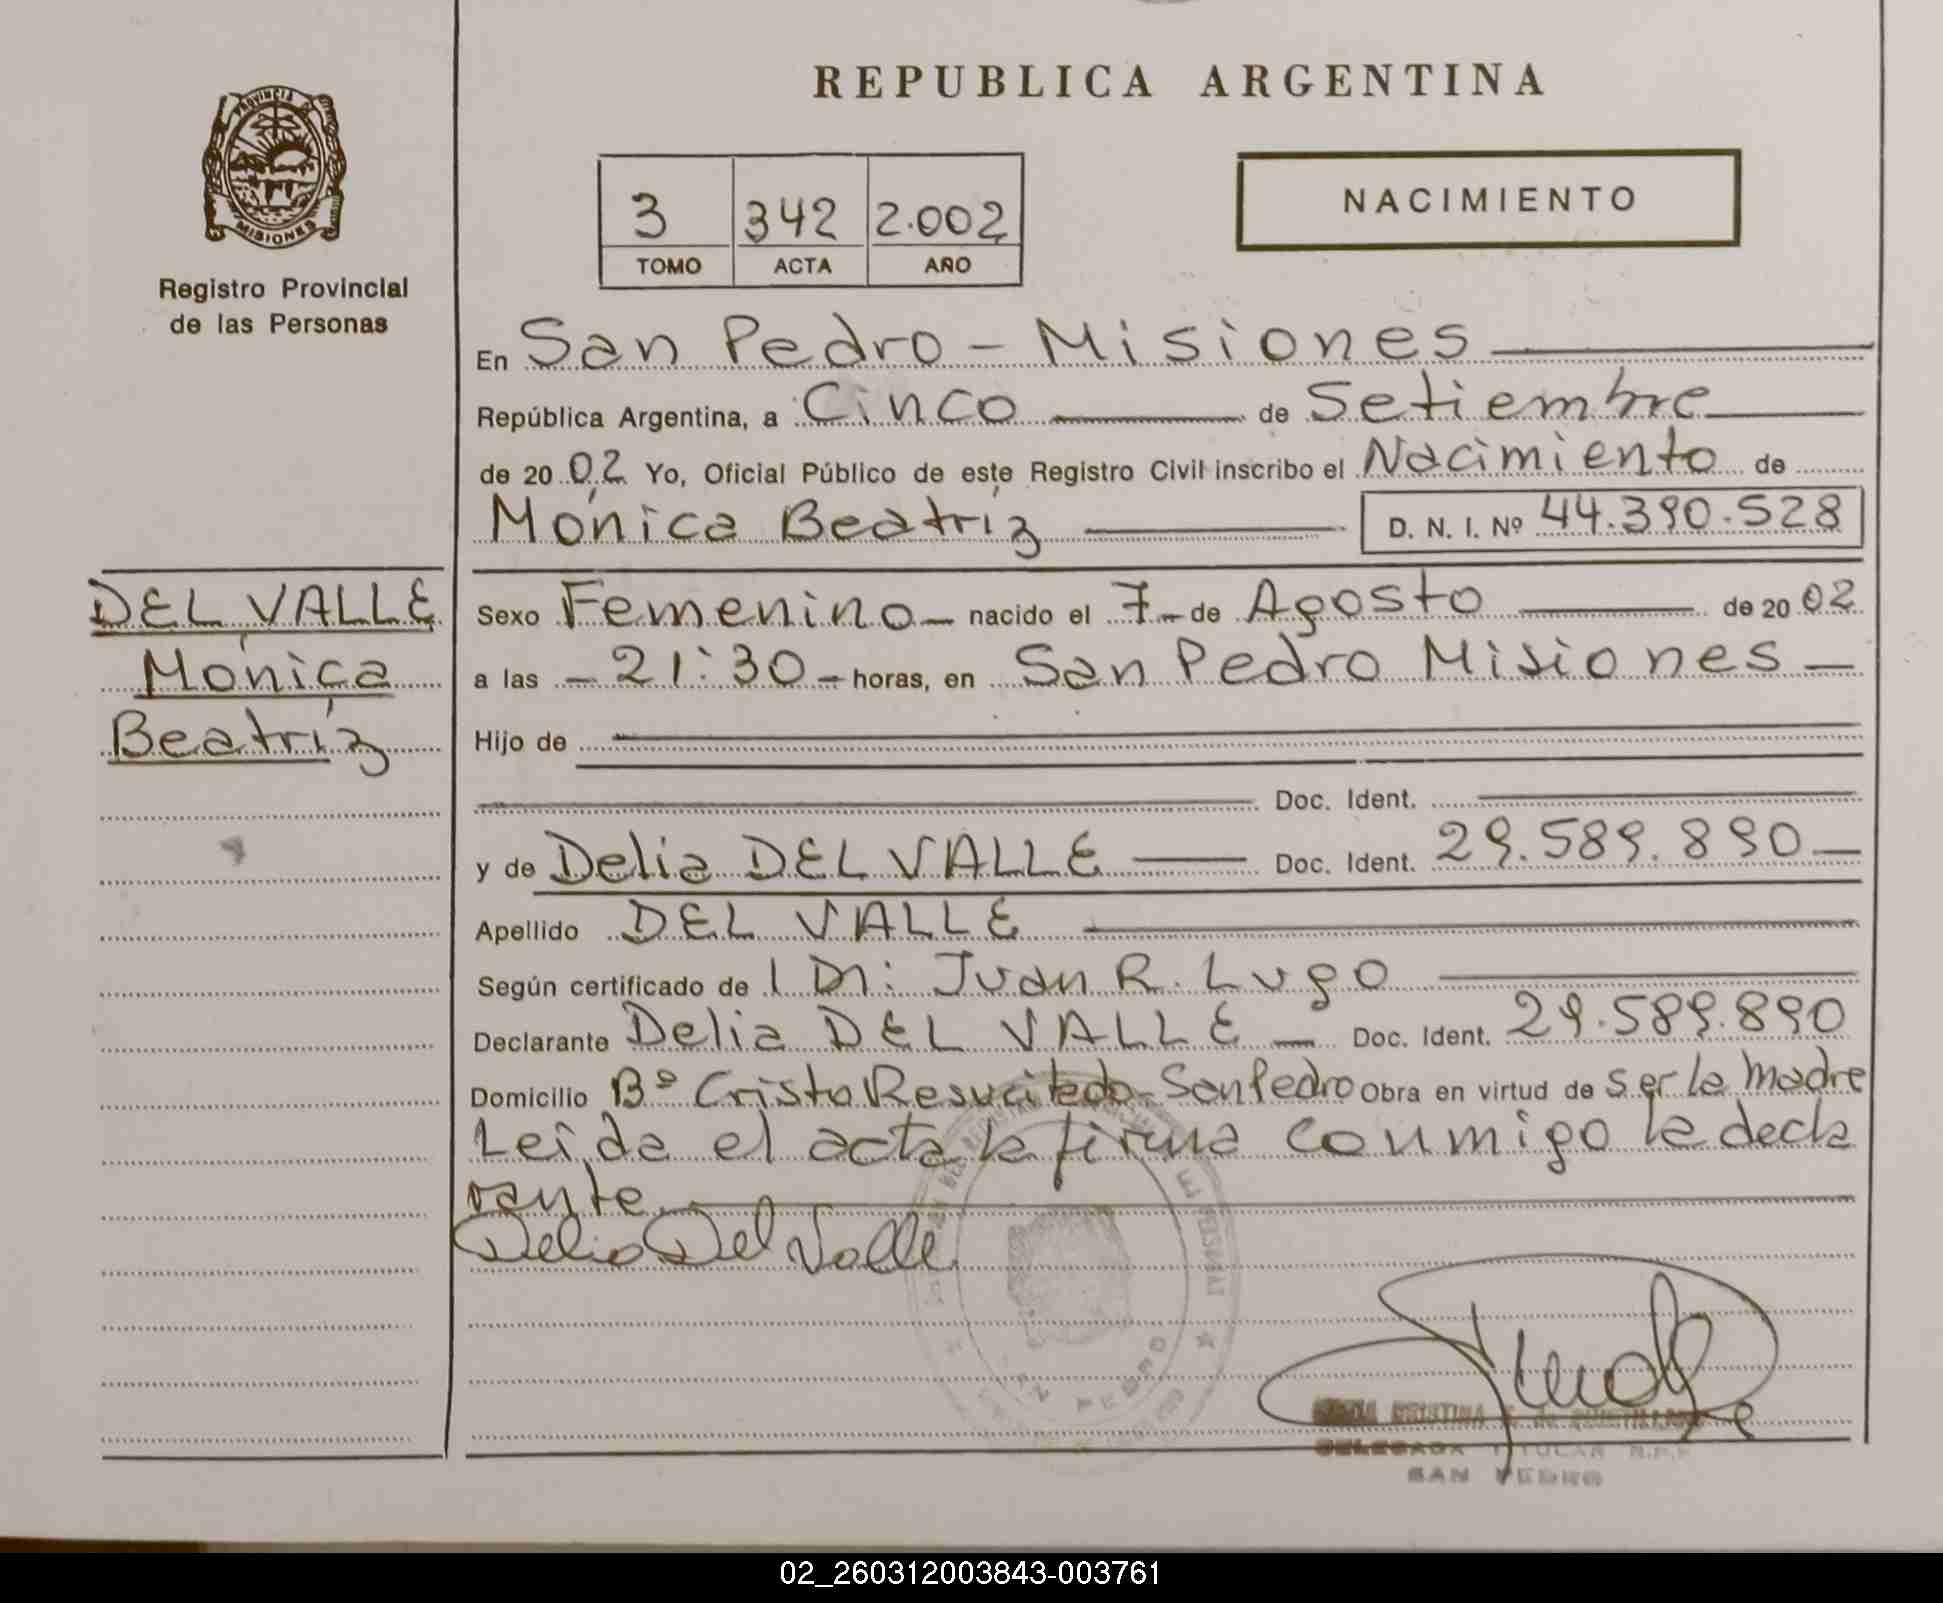 REPUBLICA ARGENTINA
PROVINCIA DE
MISIONES
Registro Provincial
de las Personas
NACIMIENTO
3 342 2.002
TOMO ACTA AÑO
En San Pedro - Misiones
República Argentina, a Cinco de Setiembre
de 20 02 Yo, Oficial Público de este Registro Civil inscribo el Nacimiento de
Mónica Beatríz D. N. I. Nº 44.390.528
DEL VALLE
Mónica
Beatríz
Sexo Femenino nacido el 7 de Agosto de 20 02
a las - 21:30 - horas, en San Pedro Misiones -
Hijo de
Doc. Ident.
y de Delia DEL VALLE Doc. Ident. 29.589.890
Apellido DEL VALLE
Según certificado de l Dr: Juan R. Lugo
Declarante Delia DEL VALLE Doc. Ident. 29.589.890
Domicilio Bº Cristo Resucitado - San Pedro Obra en virtud de ser la madre
Leida el acta la firma conmigo la decla
rante.
Delia Del Valle
SAN PEDRO
DELEGADA TITULAR R.P.P.
SAN PEDRO
02_260312003843-003761